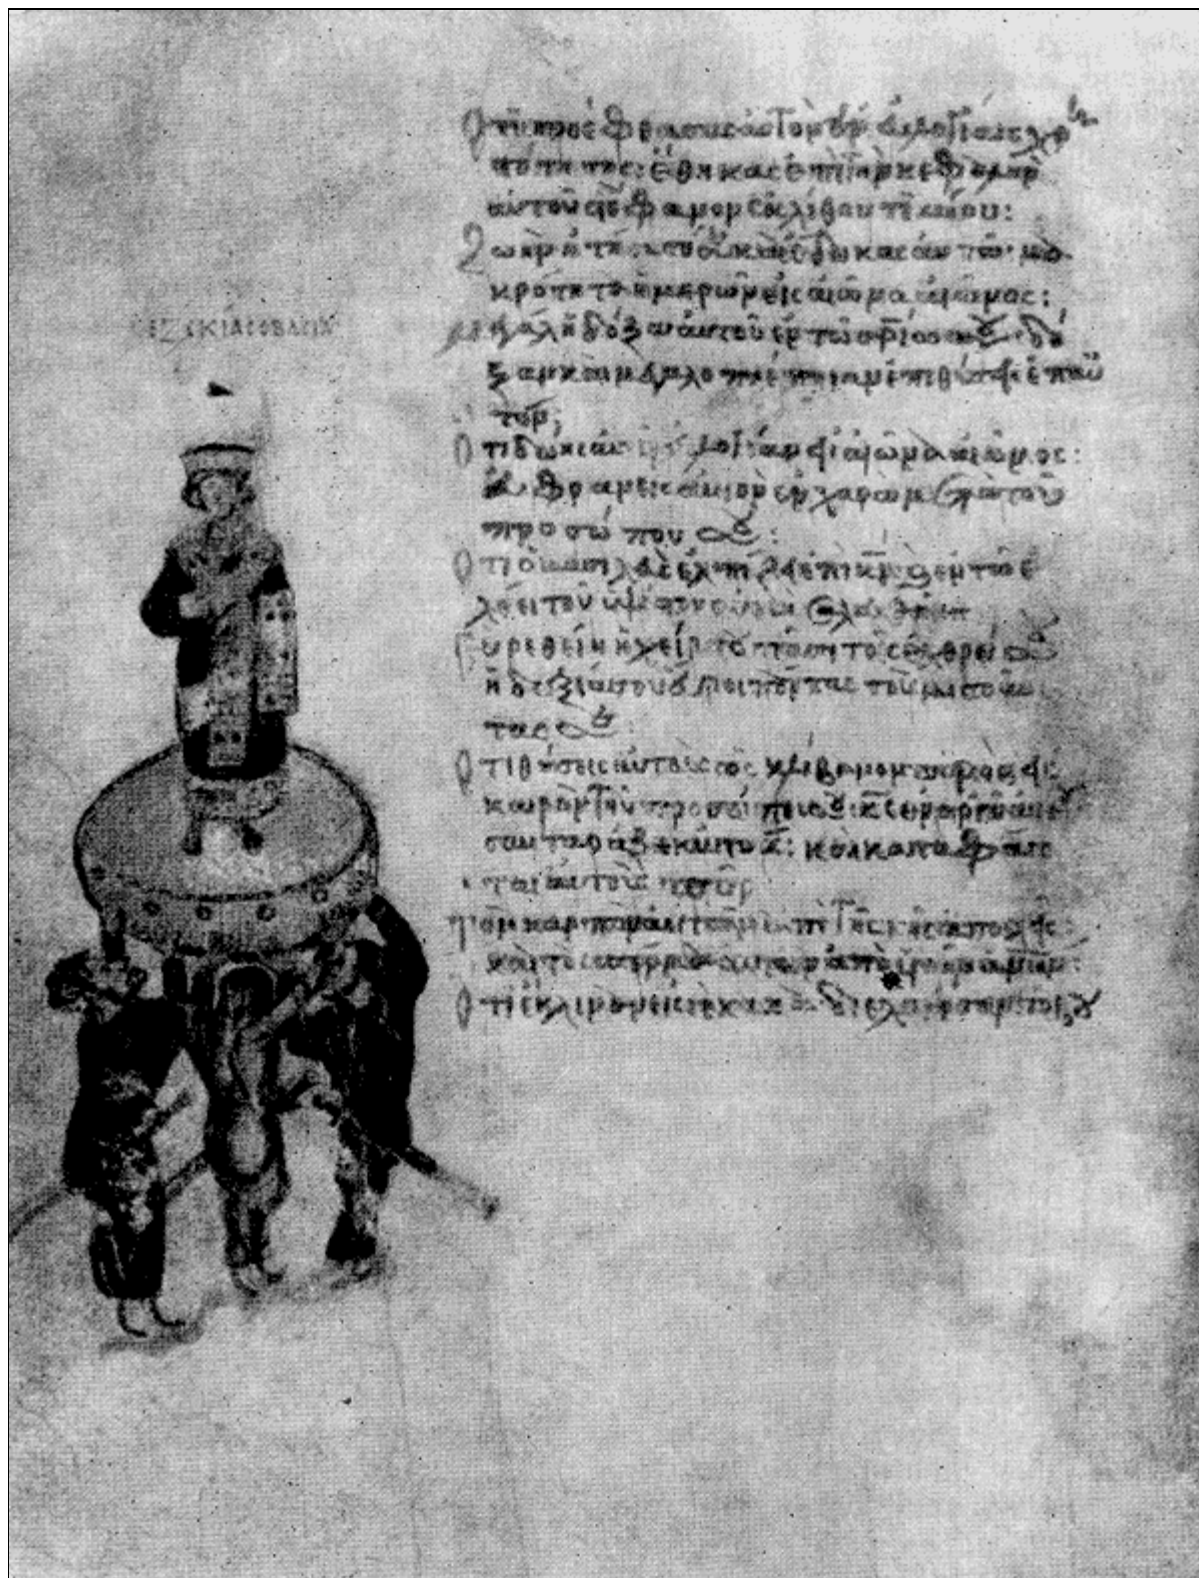 ΕΖΕΚΙΑΣ Ο ΒΑΣΙΛ
Ὅτι προέφθασας αὐτὸν ἐν εὐλογίαις χρη
στότητος· ἔθηκας ἐπὶ τὴν κεφαλὴν
αὐτοῦ στέφανον ἐκ λίθου τιμίου:
Ζωὴν ᾐτήσατό σε καὶ ἔδωκας αὐτῷ· μα
κρότητα ἡμερῶν εἰς αἰῶνα αἰῶνος:
μεγάλη ἡ δόξα αὐτοῦ ἐν τῷ σρίῳ σου· δό
ξαν καὶ μεγαλοπρέπειαν ἐπιθήσεις ἐπ' αὐ
τόν:
Ὅτι δώσεις εὐλογίαν εἰς αἰῶνα αἰῶνος:
εὐφρανεῖς αὐτὸν ἐν χαρᾷ μετὰ τοῦ
προσώπου σου:
Ὅτι ὁ βασιλεὺς ἐλπίζει ἐπὶ κν καὶ ἐν τῷ ἐ
λέει τοῦ ὑψίστου οὐ μὴ σαλευθῇ
Εὑρεθείη ἡ χείρ σου πᾶσι τοῖς ἐχθροῖς σου
ἡ δεξιά σου εὕροι πάντας τοὺς μισοῦν
τας σε:
Ὅτι θήσεις αὐτοὺς ὡς κλίβανον πυρὸς εἰς
καιρὸν τοῦ προσώπου σου κς ἐν ὀργῇ αὐτοῦ
συνταράξει αὐτούς: καὶ καταφάγε
ται αὐτοὺς πῦρ
τὸν καρπὸν αὐτῶν ἐπὶ τῆς γῆς ἀπολεῖς:
καὶ τὸ σπέρμα αὐτῶν ἀπὸ υἱῶν ἀνων:
Ὅτι ἔκλιναν εἰς σὲ κακά